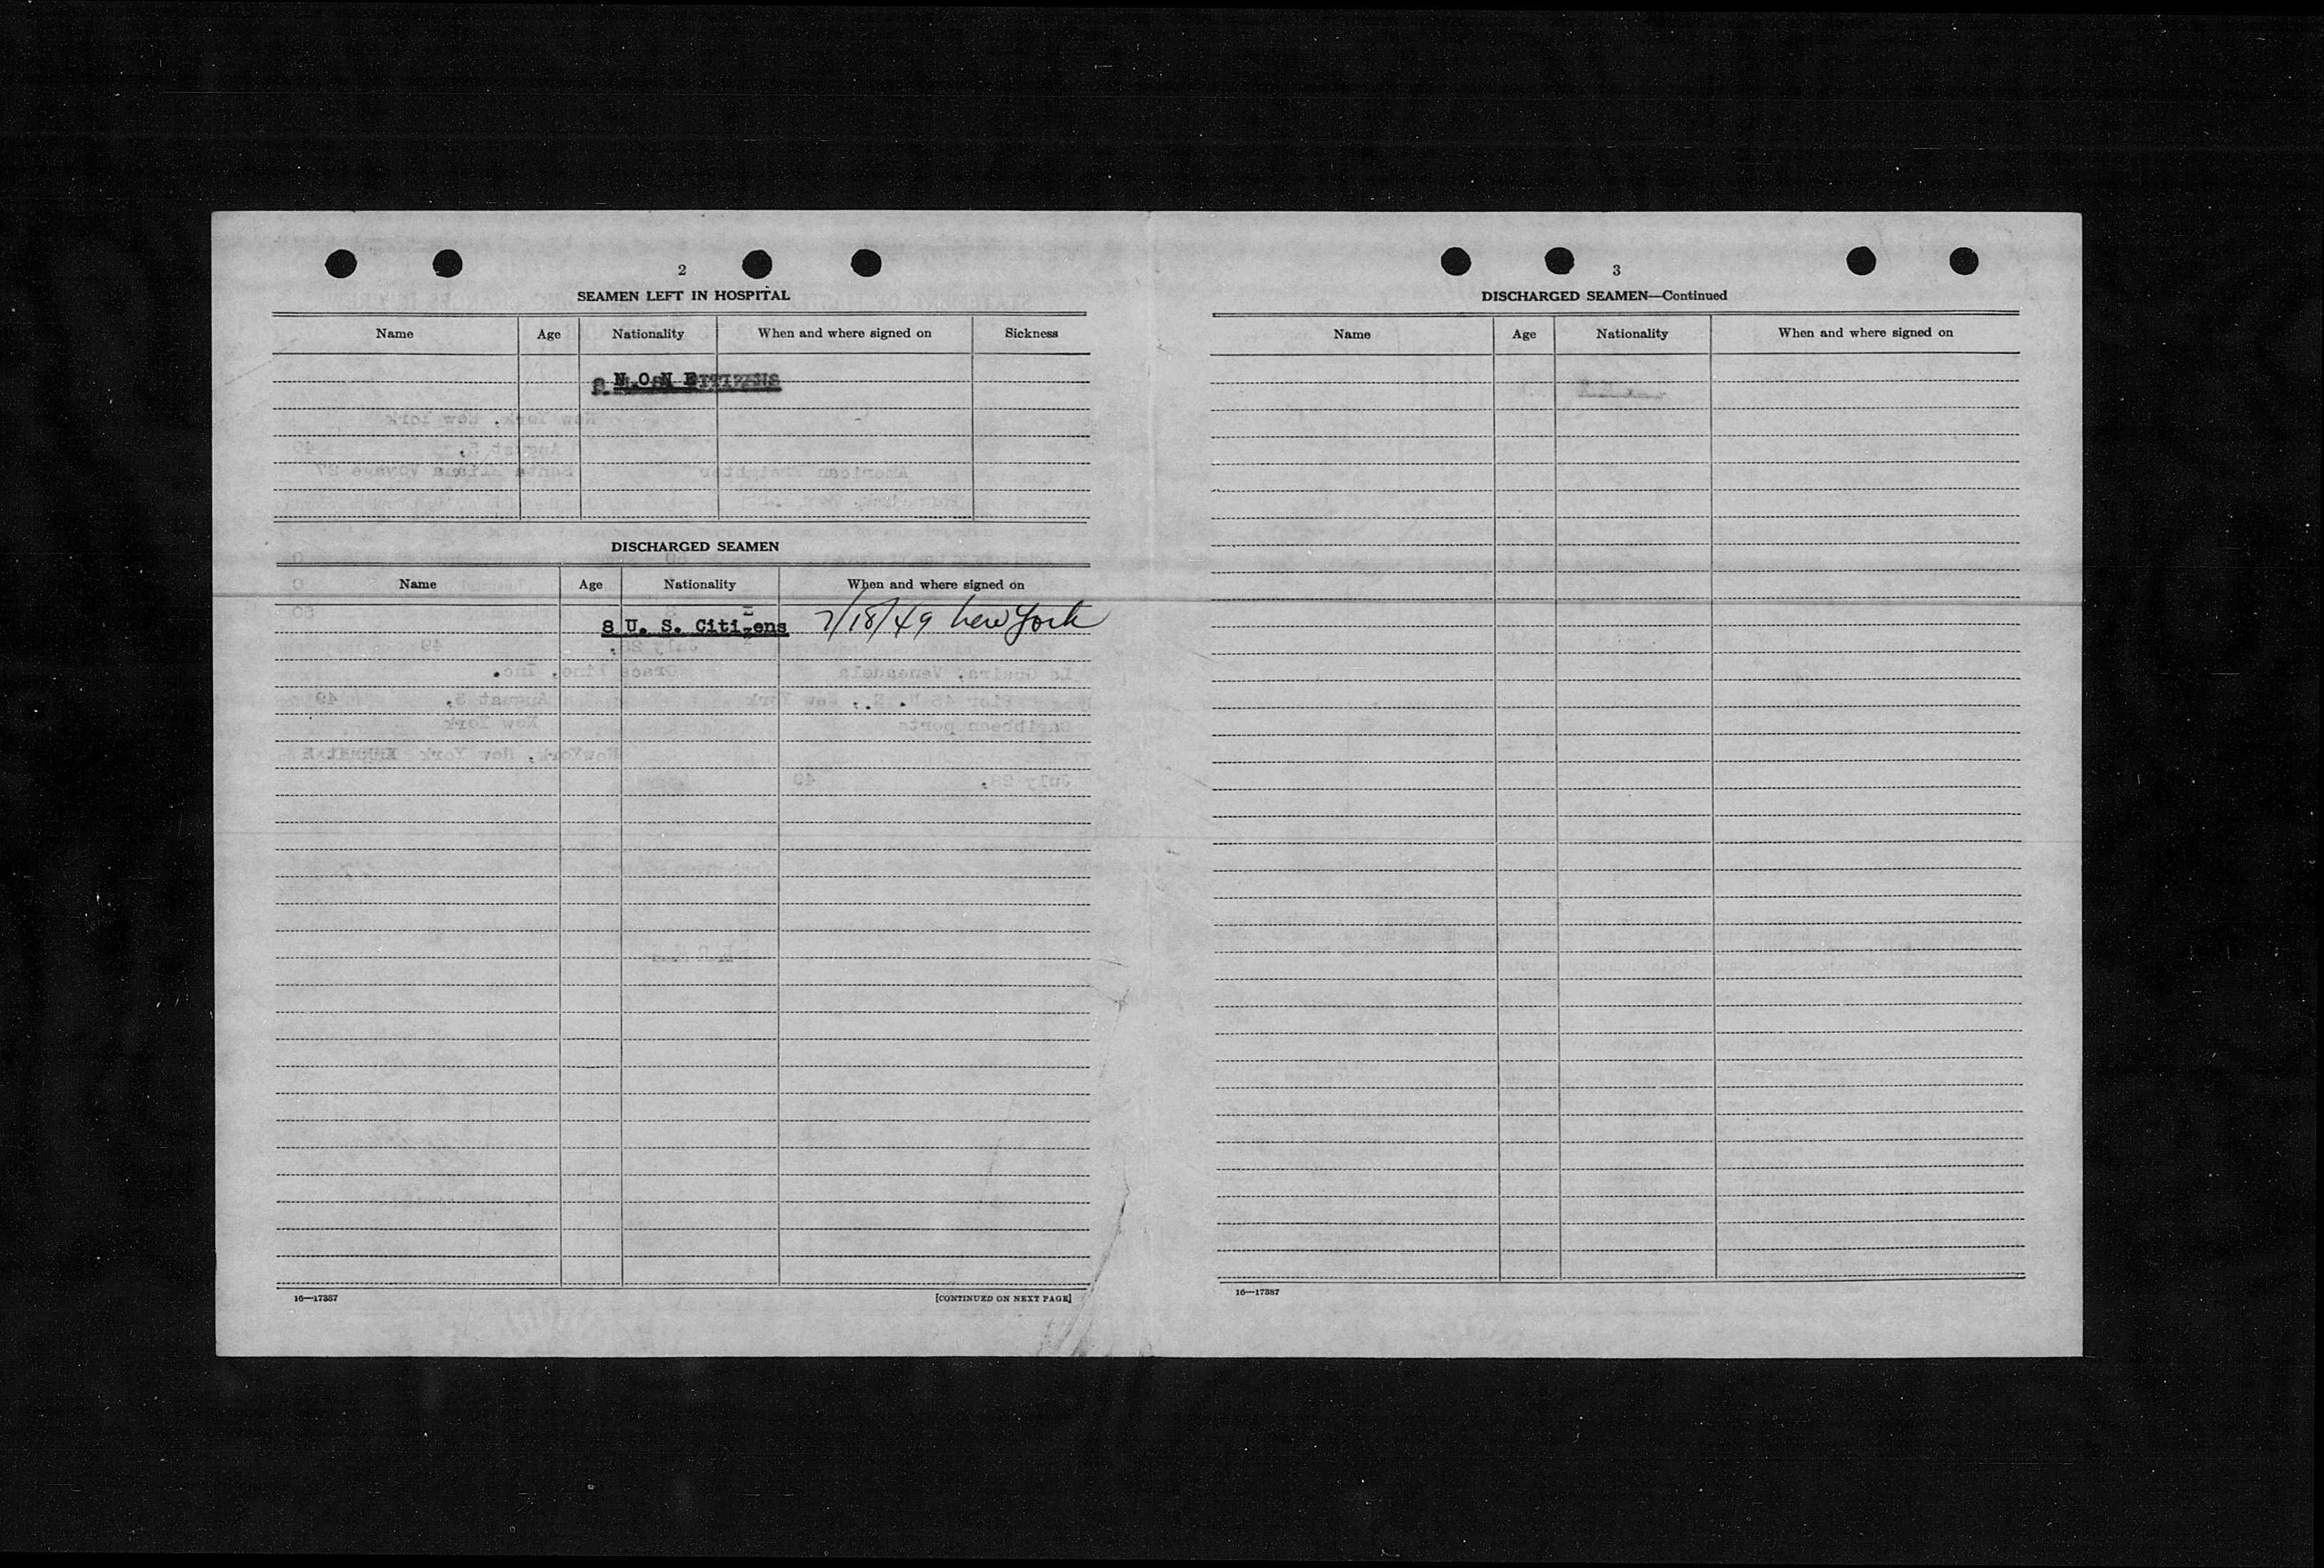 2
SEAMEN LEFT IN HOSPITAL
Name Age Nationality When and where signed on Sickness
N O N E
DISCHARGED SEAMEN
Name Age Nationality When and where signed on
8 U. S. Citizens 7/18/49 New York
16—17387
[CONTINUED ON NEXT PAGE]
3
DISCHARGED SEAMEN—Continued
Name Age Nationality When and where signed on
16—17387